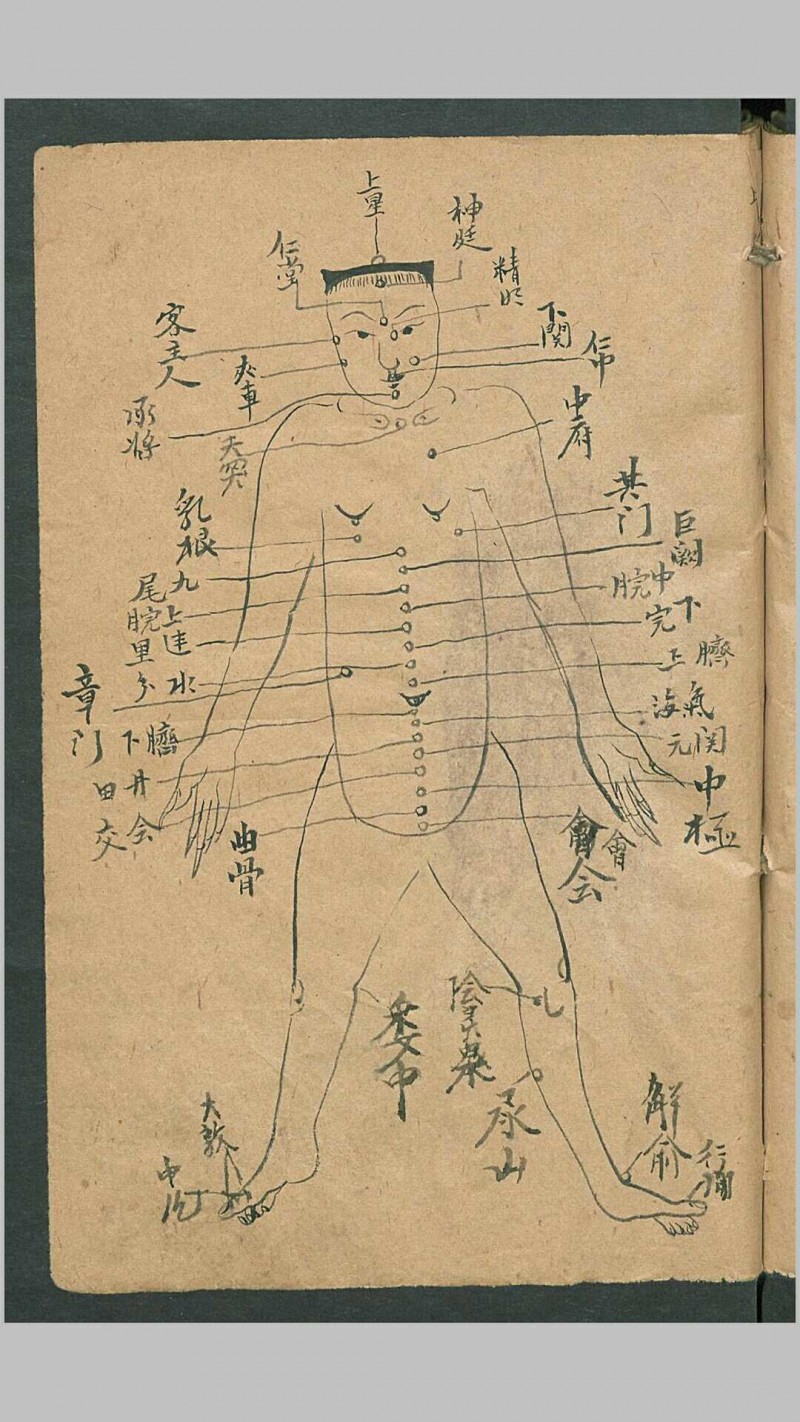 上星
神庭
仁堂
精明
客主人
下関
仁中
夾車
承將
天突
中府
乳根
其门
巨阙
九尾
中脘
上脘
下完
建里
水分
臍上
章门
氣海
臍下
関元
丹田
中極
会交
曲骨
會会
會
委中
陰
泉
承山
大敦
解俞
中
行